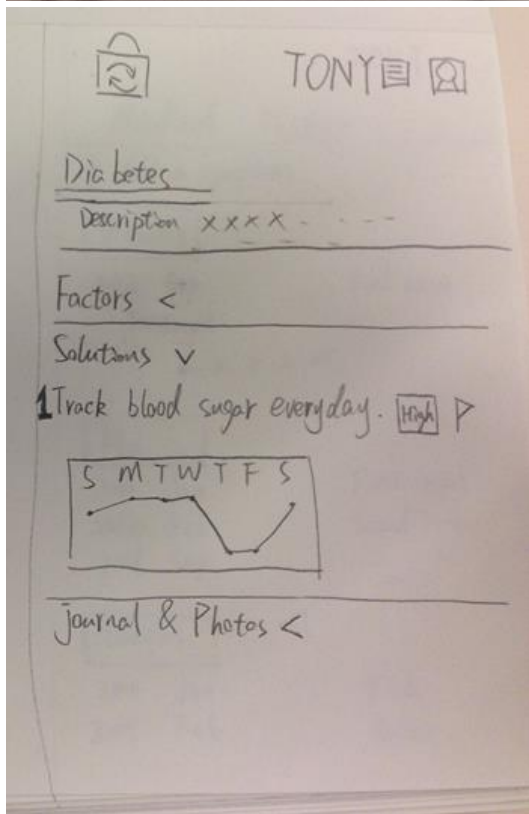 TONY
Diabetes
Description xxxx
Factors <
Solutions v
1 Track blood sugar everyday. High
S M T W T F S
journal & Photos <